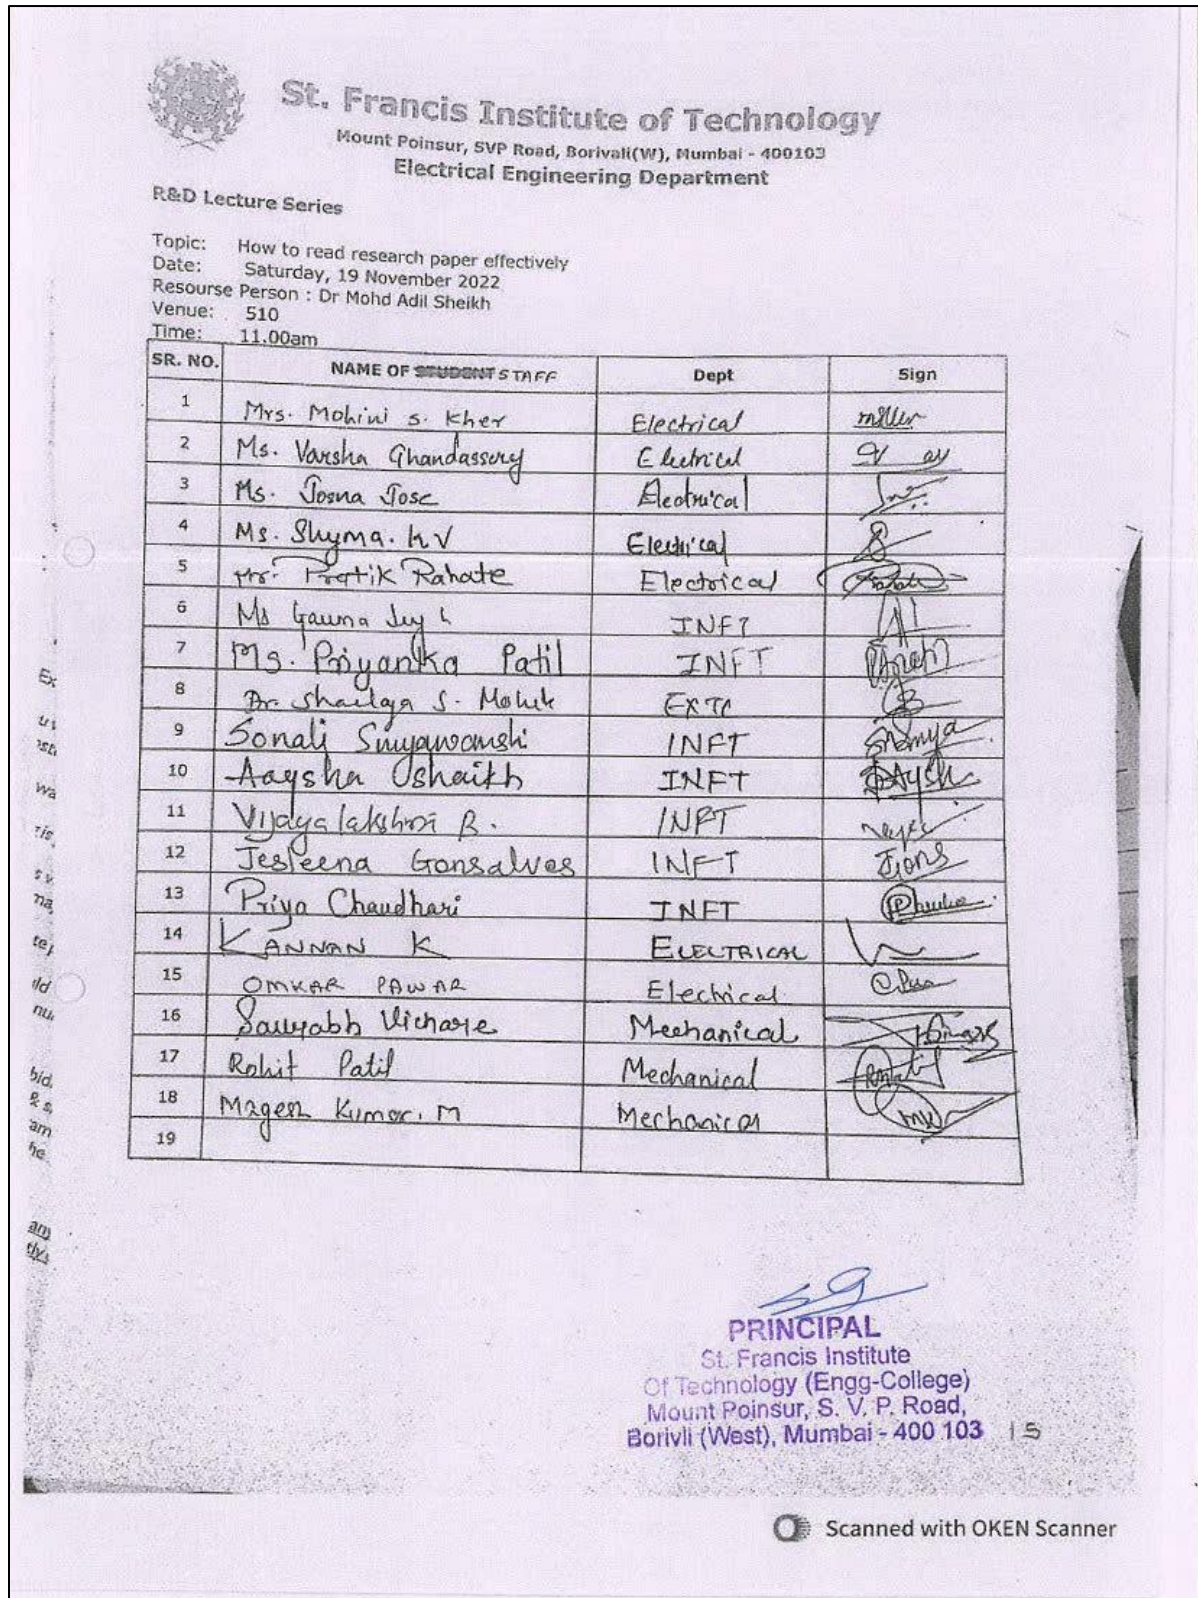 St. Francis Institute of Technology
Mount Poinsur, SVP Road, Borivali(W), Mumbai - 400103
Electrical Engineering Department
R&D Lecture Series
Topic: How to read research paper effectively
Date: Saturday, 19 November 2022
Resourse Person : Dr Mohd Adil Sheikh
Venue: 510
Time: 11.00am
SR. NO. NAME OF STUDENT STAFF Dept Sign
1 Mrs. Mohini S. Kher Electrical
2 Ms. Varsha Ghandassery Electrical
3 Ms. Josna Jose Electrical
4 Ms. Shyma. K V Electrical
5 Mr. Pratik Rahate Electrical
6 Ms INFT
7 Ms. Priyanka Patil INFT
8 Dr. Shailaja S. EXTC
9 Sonali Suryawanshi INFT
10 Aaysha Shaikh INFT
11 Vijayalakshmi B. INFT
12 Jesleena Gonsalves INFT
13 Priya Chaudhari INFT
14 KANNAN K ELECTRICAL
15 OMKAR PAWAR Electrical
16 Saurabh Vichare Mechanical
17 Rohit Patil Mechanical
18 Magesh Kumar. M Mechanical
19
PRINCIPAL
St. Francis Institute
Of Technology (Engg-College)
Mount Poinsur, S. V. P. Road,
Borivli (West), Mumbai - 400 103 15
Scanned with OKEN Scanner